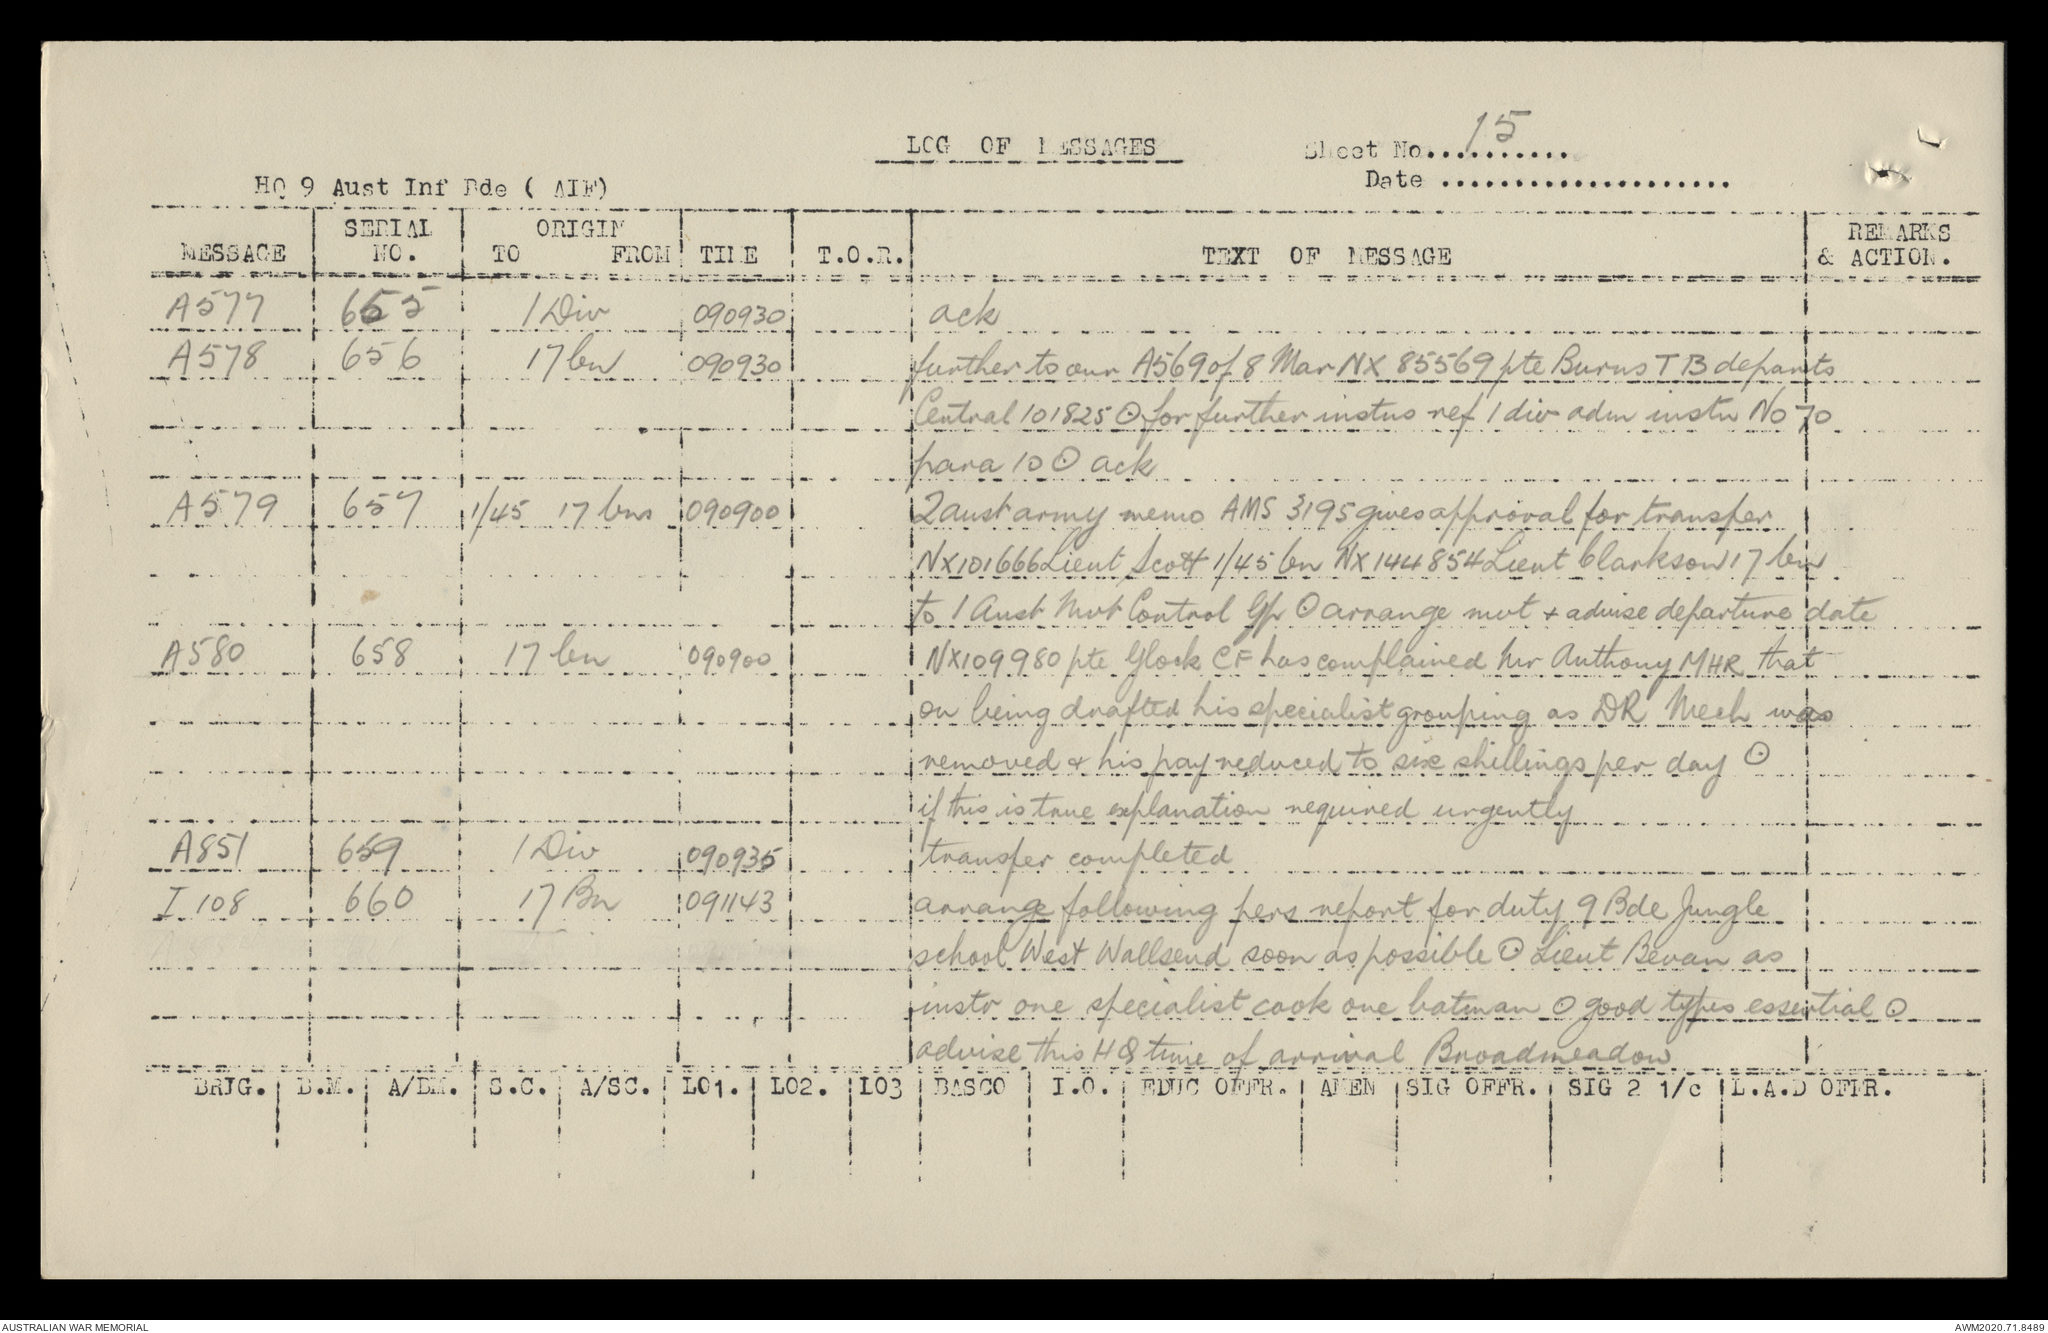 LOG OF MESSAGES
Sheet No. 15
Date ....................
HQ 9 Aust Inf Bde ( AIF)
MESSAGE SERIAL NO. ORIGIN TO FROM TIME T.O.R. TEXT OF MESSAGE REMARKS & ACTION.
A577 655 1 Div 090930 ack
A578 656 17 bn 090930 further to our A569 of 8 Mar NX 85569 pte Burns T B departs
Central 101825 ⊙ for further instns ref 1 div adm instn No 70
para 10 ⊙ ack
A579 657 1/45 17 bns 090900 2 aust army memo AMS 3195 gives approval for transfer
NX101666 Lieut Scott 1/45 bn NX144854 Lieut Clarkson 17 bn
to 1 Aust Mvt Control Gp ⊙ arrange mvt + advise departure date
A580 658 17 bn 090900 NX109980 pte Glock CF has complained Mr Anthony MHR that
on being drafted his specialist grouping as DR Mech was
removed + his pay reduced to six shillings per day ⊙
if this is true explanation required urgently
A851 659 1 Div 090935 transfer completed
I 108 660 17 Bn 091143 arrange following pers report for duty 9 Bde Jungle
school West Wallsend soon as possible ⊙ Lieut Bevan as
instr one specialist cook one batman ⊙ good types essential ⊙
advise this HQ time of arrival Broadmeadow
BRIG. B.M. A/BM. S.C. A/SC. LO1. LO2. LO3 BASCO I.O. EDUC OFFR. AMEN SIG OFFR. SIG 2 1/c L.A.D OFFR.
AUSTRALIAN WAR MEMORIAL
AWM2020.71.8489